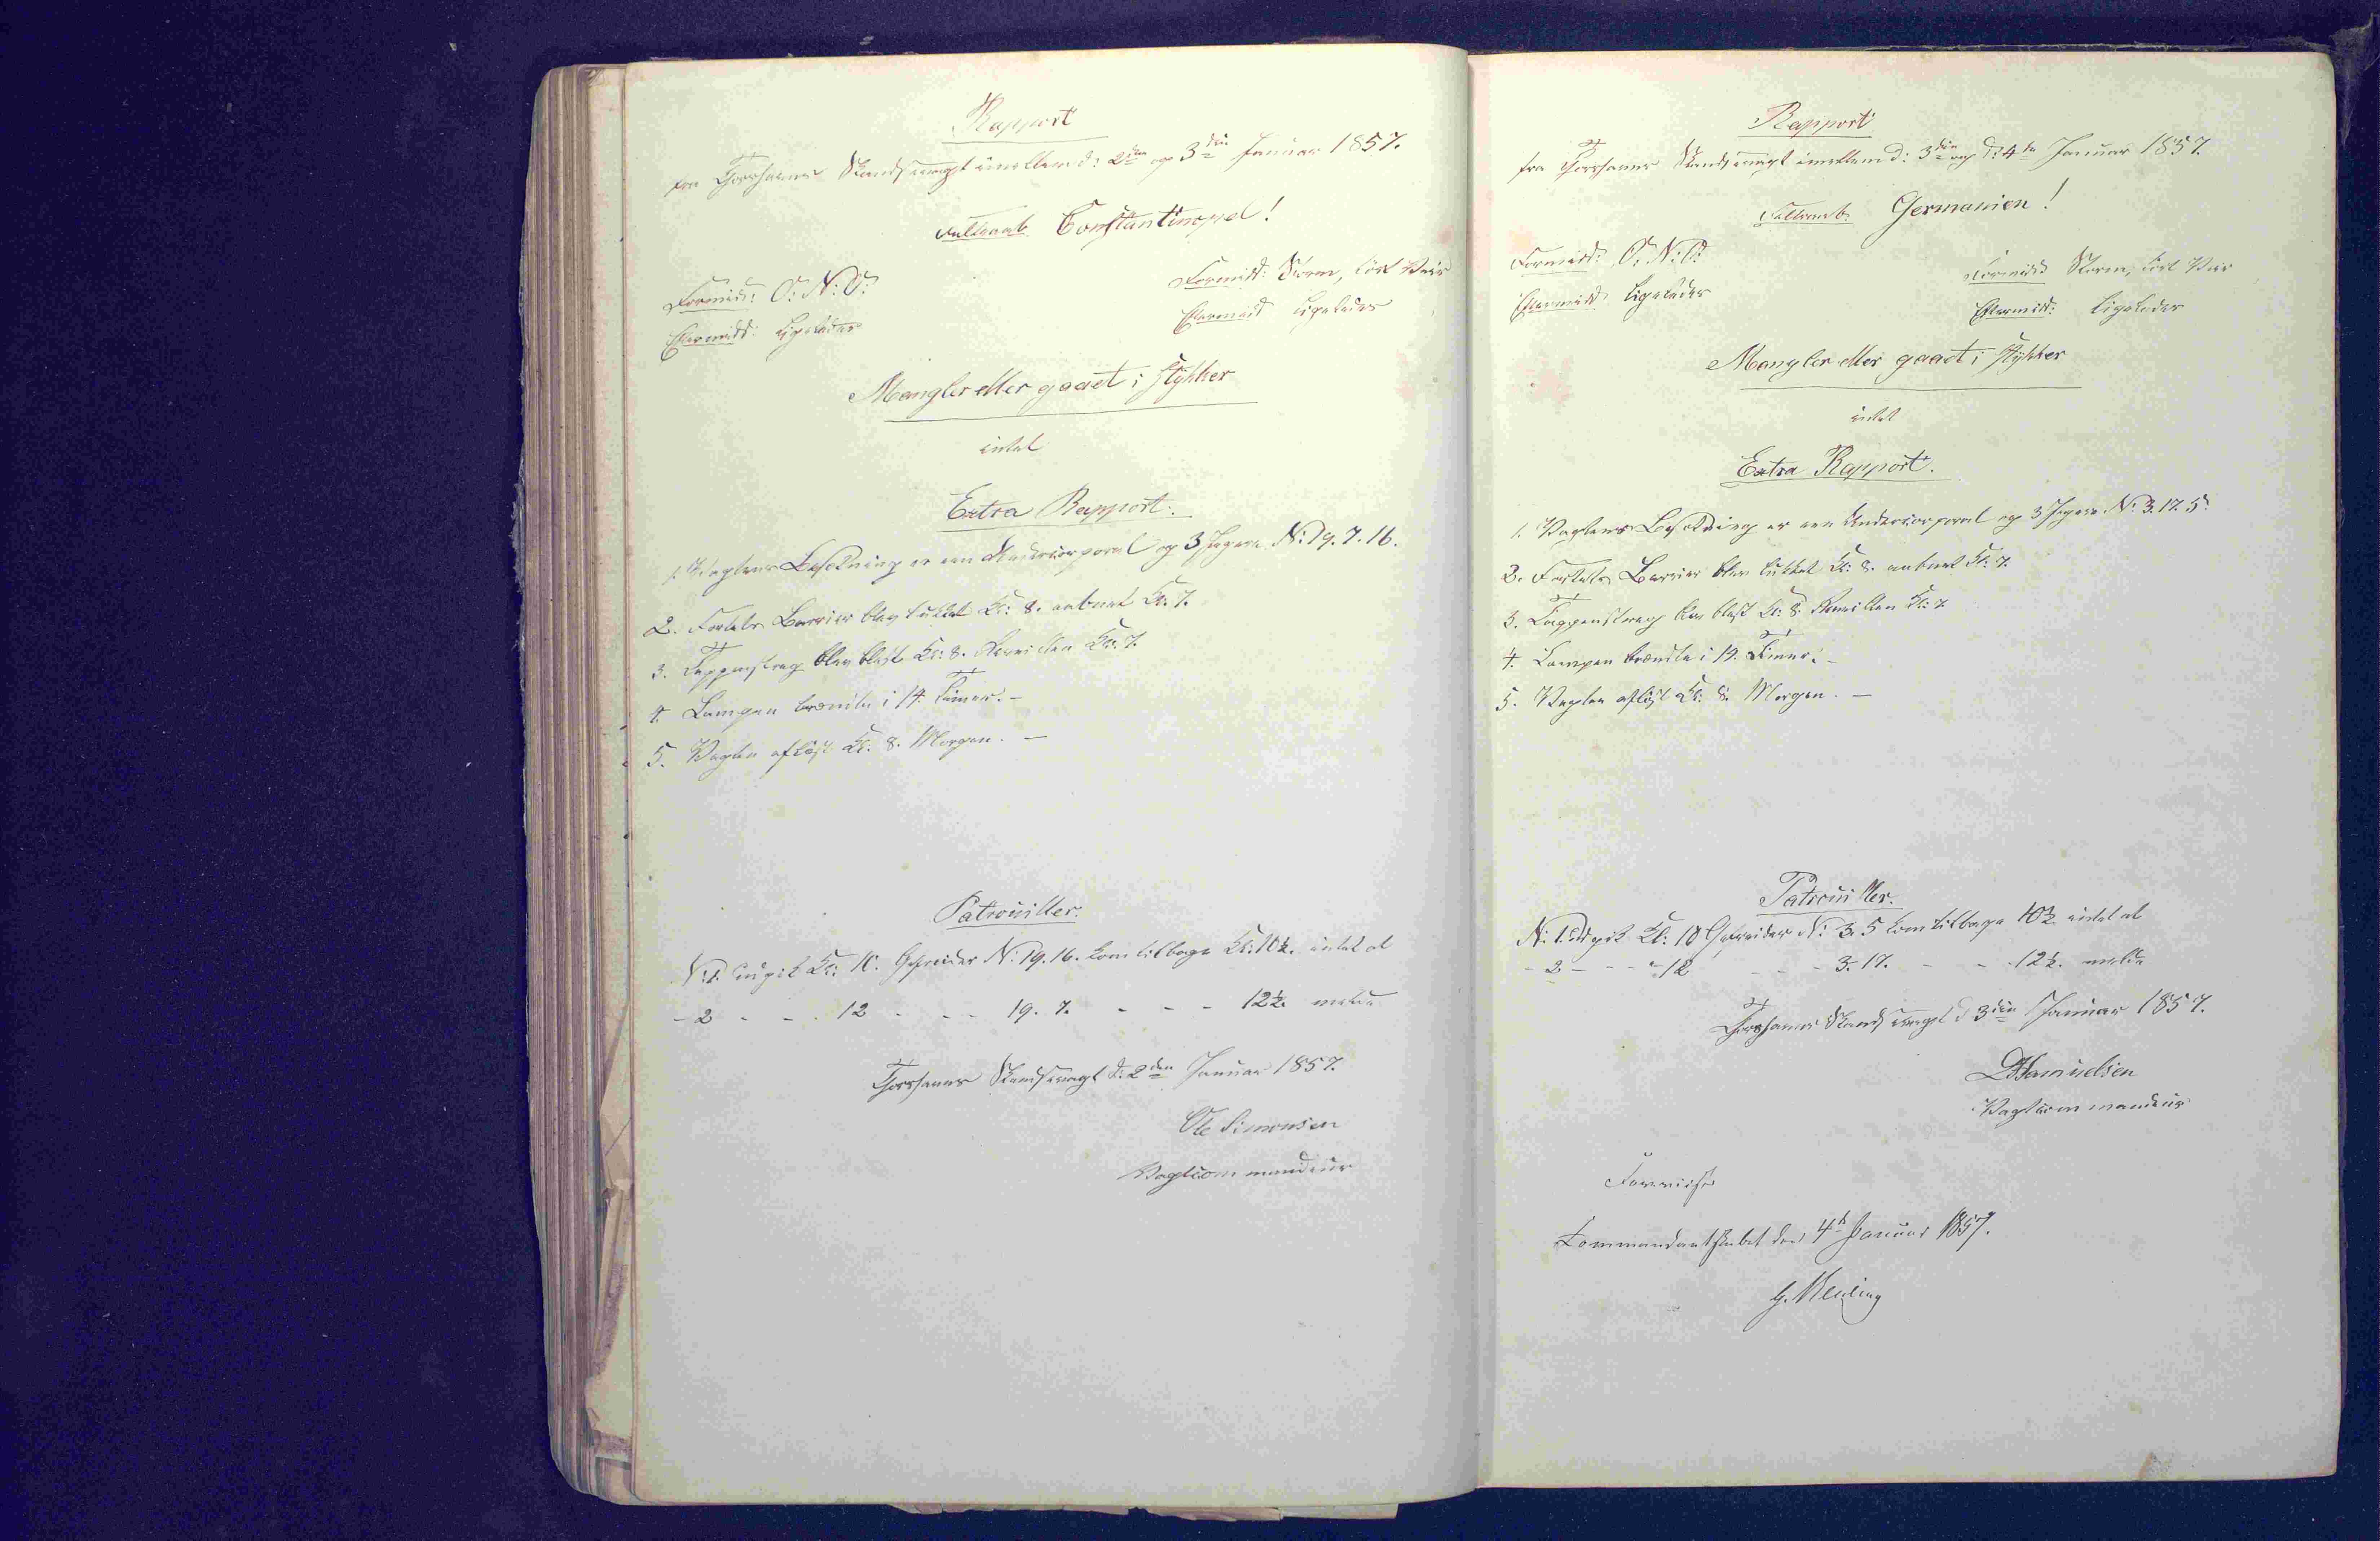 Rapport
fra Thorshavns Skandsevagt imellem d: 2den og 3die Januar 1857.
Feltraab Constantinopel!
Formidd: O: N: O: Formidd: Storm, tört Veir
Eftermidd: ligeledes Eftermidd ligeledes
Mangler eller gaaet i stykker
intet
Extra Rapport.
1. Vagtens Besætning er een Undercorporal og 3 Jægere N: 19. 7. 16.
2. Fortets Barrier blev lukket Kl: 8. aabnet Kl: 7.
3. Tappenstreg blev blæst Kl: 8. Reveillen Kl: 7.
4. Lampen brændte i 14 Timer. –
5. Vagten aflöst Kl. 8. Morgen. –
Patrouiller.
N: 1. udgik Kl: 10. Gefreider N: 19. 16. kom tilbage Kl: 10½. intet at
- 2 - - - 12 - - - 19. 7. - - - 12½ melde
Thorshavns Skandsevagt d: 2den Januar 1857.
Ole Simonsen
Vagtcommandeur
Rapport
fra Thorshavns Skandsevagt imellem d: 3die og d: 4de Januar 1857.
Feltraab. Germanien!
Formidd: O: N: O: Formidd: Storm, tört Veir
Eftermidd ligeledes Eftermidd: ligeledes
Mangler eller gaaet i stykker
intet
Extra Rapport.
1. Vagtens Besætning er een Undercorporal og 3 Jægere N: 3. 17. 5.
2. Fortets Barrier blev lukket Kl: 8. aabnet Kl: 7.
3. Tappenstreg blev blæst Kl: 8. Reveillen Kl: 7.
4. Lampen brændte i 14. Timer. –
5. Vagten aflöst Kl: 8. Morgen. –
Patrouiller.
N: 1. udgik Kl: 10 Gefreider N: 3. 5 kom tilbage 10½ intet at
- 2 - - - 12 - - - 3. 17. - - 12½. melde
Thorshavns Skandsevagt d 3die Januar 1857.
Samuelsen
Vagtcommandeur
Foreviist
Commandantskabet den 4de Januar 1857.